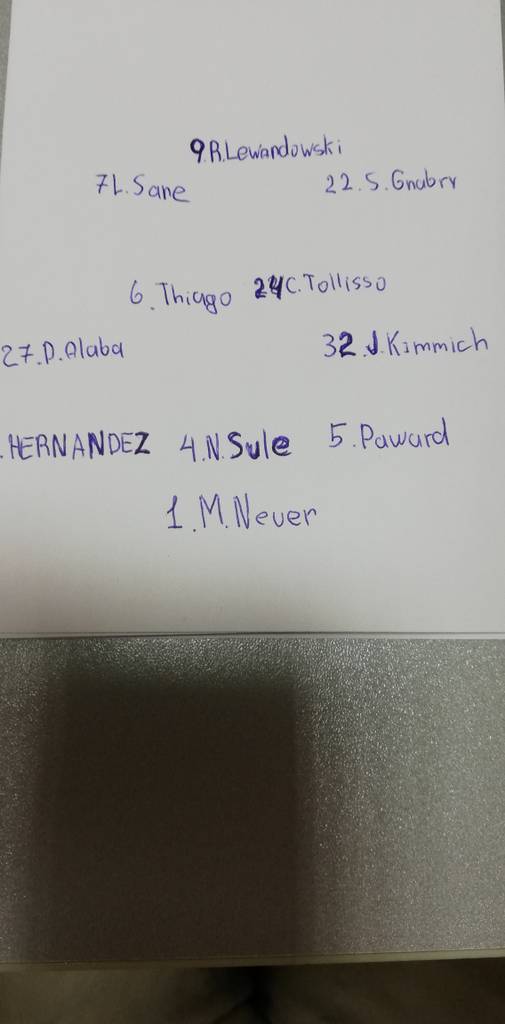 9.R.Lewandowski
7L.Sane 22.S.Gnabry
6.Thiago 24C.Tollisso
27.D.Alaba 32.J.Kimmich
.HERNANDEZ 4.N.Sule 5.Paward
1.M.Never